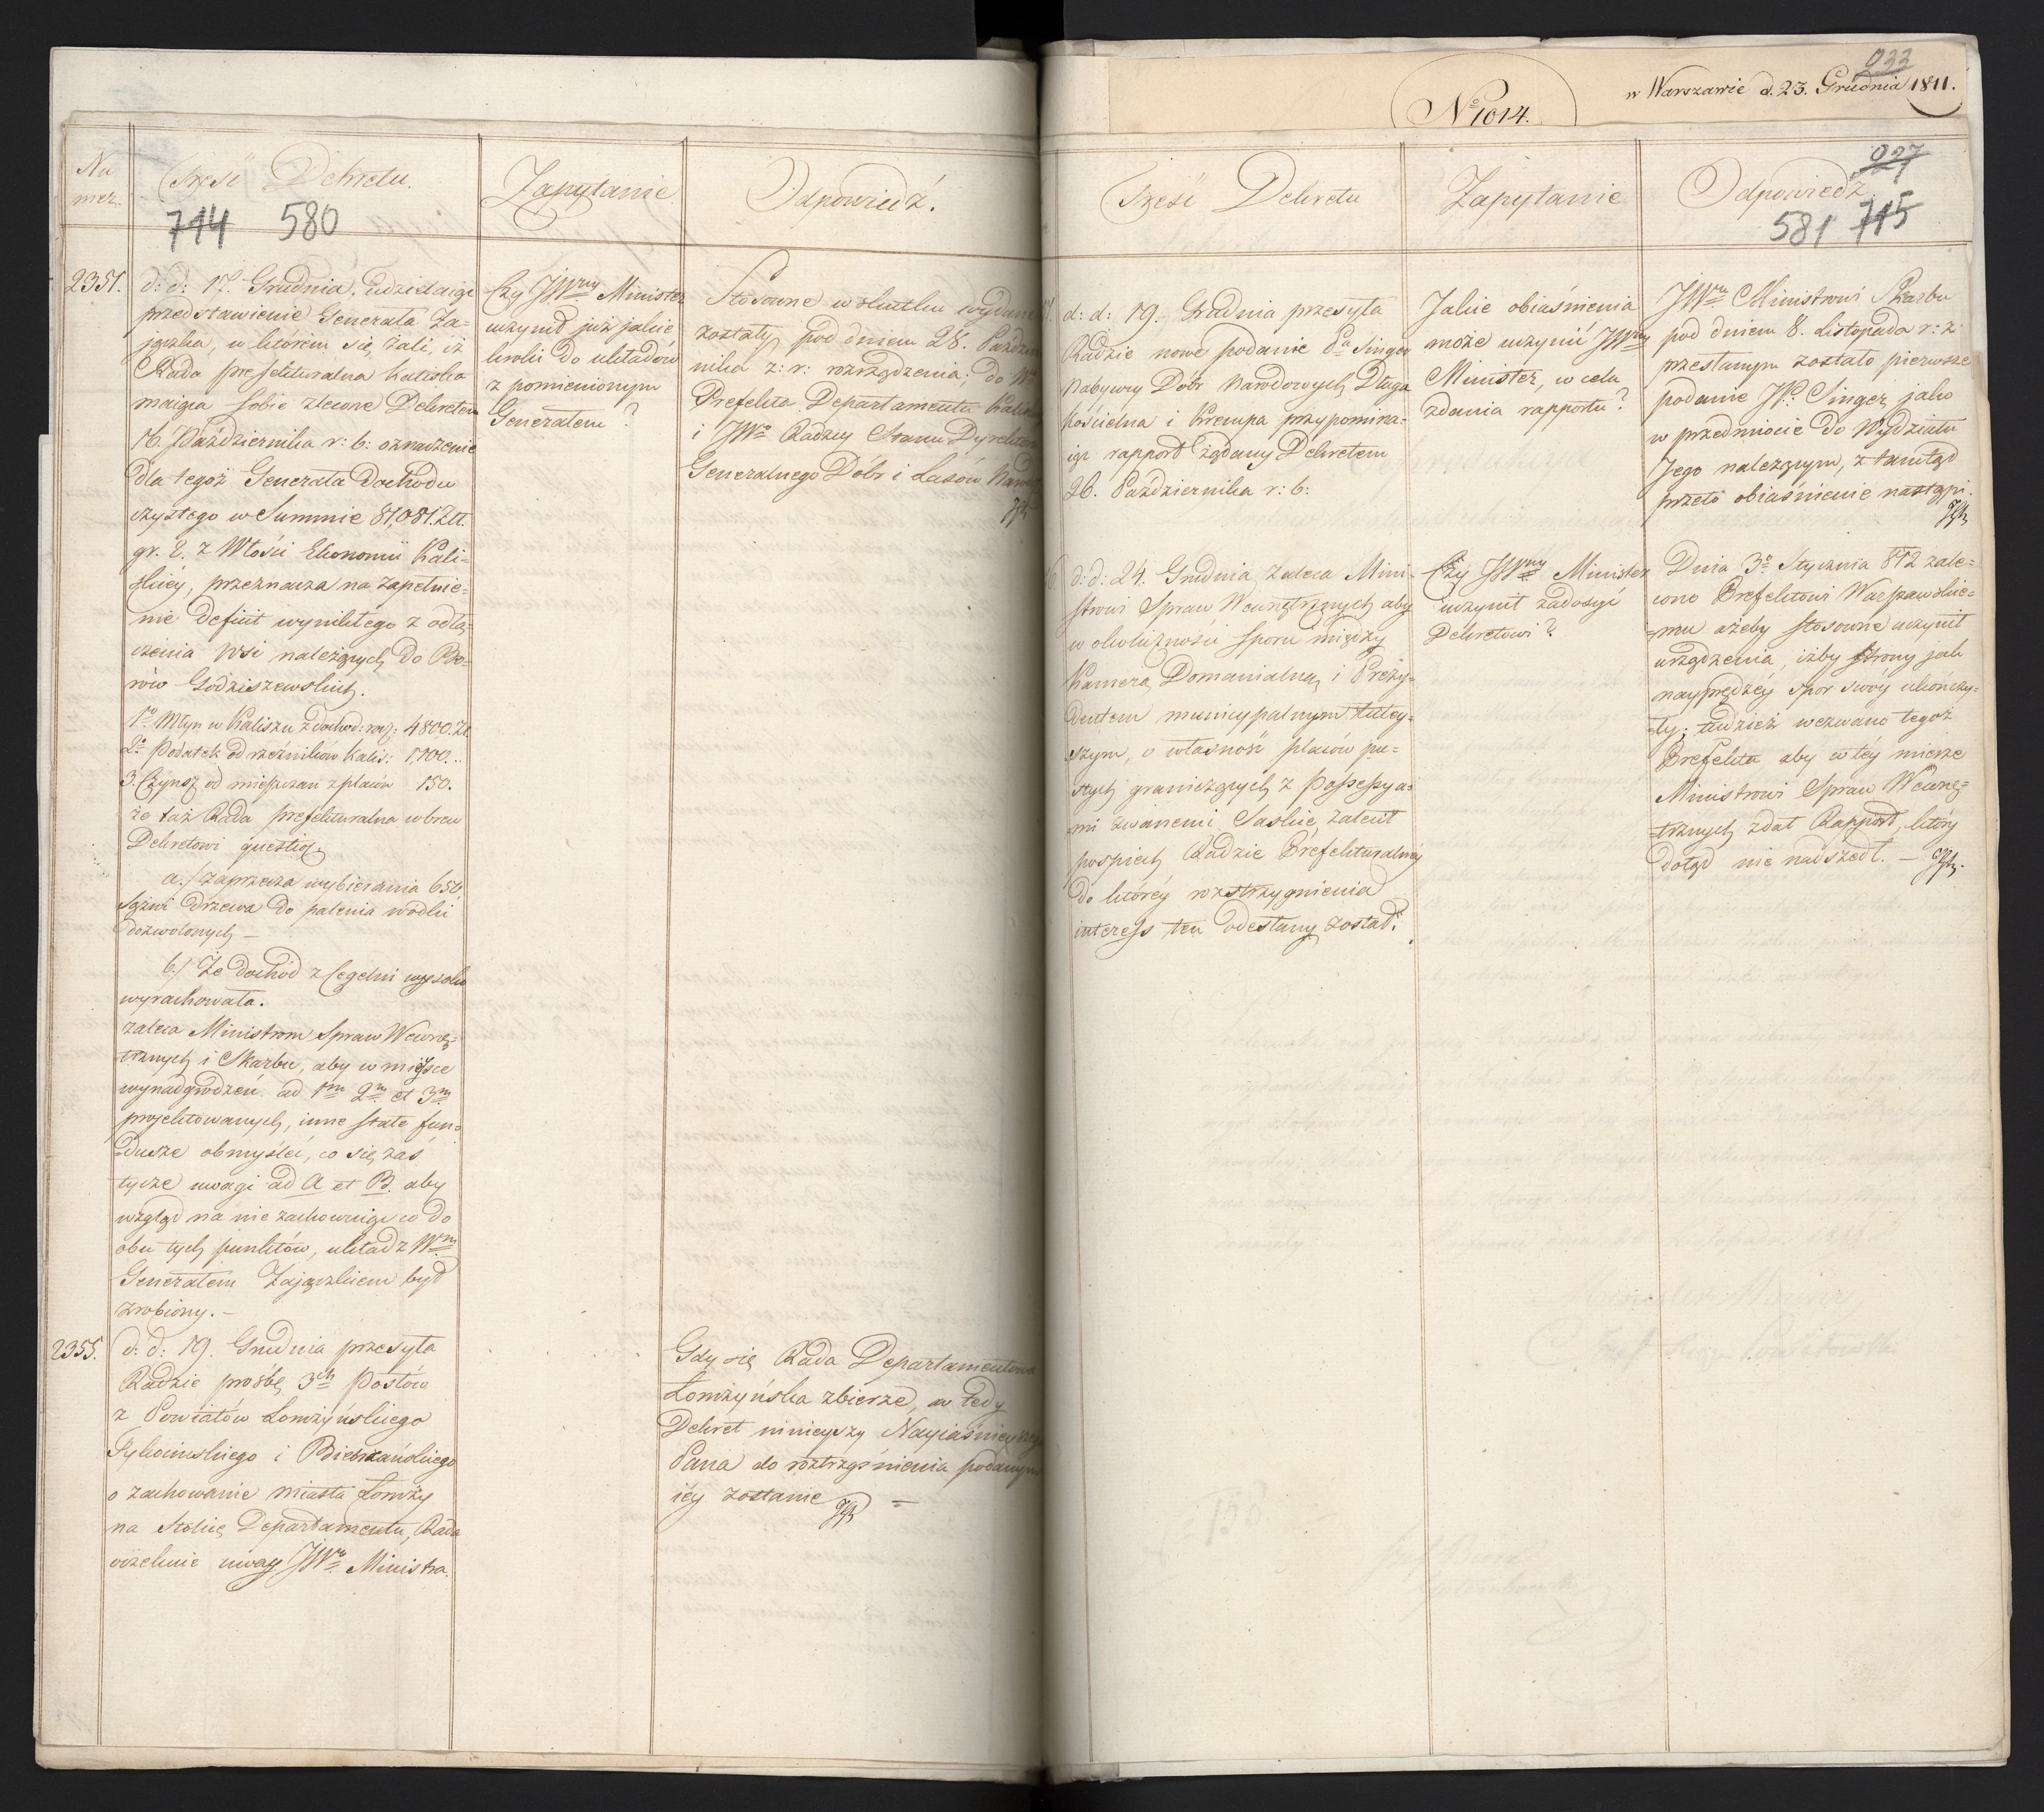 Nu
mer.
Treść Dekretu.
Zapytanie
Odpowiedź.
714 580
2354.
d: d: 17. Grudnia, udzielaiąc
przedstawienie Generała Za-
jączka, w którem się żali, iż
Rada prefekturalna Kaliska
maiąca sobie zlecone Dekretem
16. Października r: b: oznaczenie
dla tegoż Generała Dochodu
czystego w Summie 81,081. Złł.
gr. 8. z Włości Ekonomii Kali-
skiey, przeznacza na zapełnie-
nie deficit wynikłego z odłą-
czenia Wsi należących do Bo-
rów Godziszewskich.
1o Młyn w Kaliszu z dochod: rocz: 4800. Zł.
2o Podatek od rzeźników Kalis: 1700...
3. Czynsz od mieszczan z placów 150.
że taż Rada prefekturalna wbrew
Dekretowi questią
a./ zaprzecza wybierania 650
Sążni drzewa do palenia wodki
dozwolonych —
b./ Że dochód z Cegelni wysoko
wyrachowała.
zaleca Ministrom Spraw Wewnę-
trznych i Skarbu, aby w mieysce
wynadgrodzeń ad 1m 2m et 3m
projektowanych, inne stałe fun-
dusze obmyślić, co się zaś
tycze uwagi ad A et B. aby
wzgląd na nie zachowuiąc co do
obu tych punktów, układ z Wm
Generałem Zajączkiem był
zrobiony. —
Czy JWny Minister
uczynił już jakie
kroki do układów
z pomienionym
Generałem?
Stosowne w skutku wydane
zostały pod dniem 28. Paździer
nika z: r: rozrządzenia; do Wo
Prefekta Departamentu Kalisk
i JWo Radzcy Stanu Dyrektora
Generalnego Dóbr i Lasów Narod
2355.
d: d: 19. Grudnia przesyła
Radzie prośbę 3ch Posłów
z Powiatów Łomżyńskiego
Tykocinskiego i Biebrzańskiego
o zachowanie miasta Łomży
na Stolicę Departamentu, Rada
oczekuie uwag JWo Ministra.
Gdy się Rada Departamentowa
Łomżyńska zbierze, w tedy
Dekret ninieyszy Nayiaśnieyszego
Pana do roztrząśnienia podanym
iéy zostanie —
No 1014.
w Warszawie d. 23. Grudnia 1811.
Treść Dekretu
Zapytanie
Odpowiedź
581 715
d: d: 19. Grudnia przesyła
Radzie nowe podanie Pa Singer
Nabywcy Dóbr Narodowych Długa
Kościelna i Krempa przypomina-
iąc rapport żądany Dekretem
26. Października r: b:
Jakie obiaśnienia
może uczynić JWny
Minister, w celu
zdania rapportu?
JWmu Ministrowi Skarbu
pod dniem 8. Listopada r: z:
przesłanym zostało pierwsze
podanie JP: Singer jako
w przedmiocie do Wydziału
Jego należącym, z tamtąd
przeto obiaśnienie nastąpi.
d: d: 24. Grudnia zaleca Mini-
strowi Spraw Wewnętrznych aby
w okoliczności sporu między
Kamerą Domanialną i Prezy-
dentem municypalnym tutey-
szym, o własność placów pu-
stych graniczących z Possessya-
mi zwanemi Saskie zalecił
pospiech Radzie Prefekturalnéy
do któréy rozstrzygnienia
interess ten odesłany został.
Czy JWny Minister
uczynił zadosyć
Dekretowi?
Dnia 3o Stycznia 812 zale-
cono Prefektowi Warszawskie-
mu ażeby stosowne uczynił
urządzenia, iżby strony jak
nayprędzéy spor swóy ukończy-
ły; tudzież wezwano tegoż
Prefekta aby w téy mierze
Ministrowi Spraw Wewnę-
trznych zdał Rapport, który
dotąd nie nadszedł. —